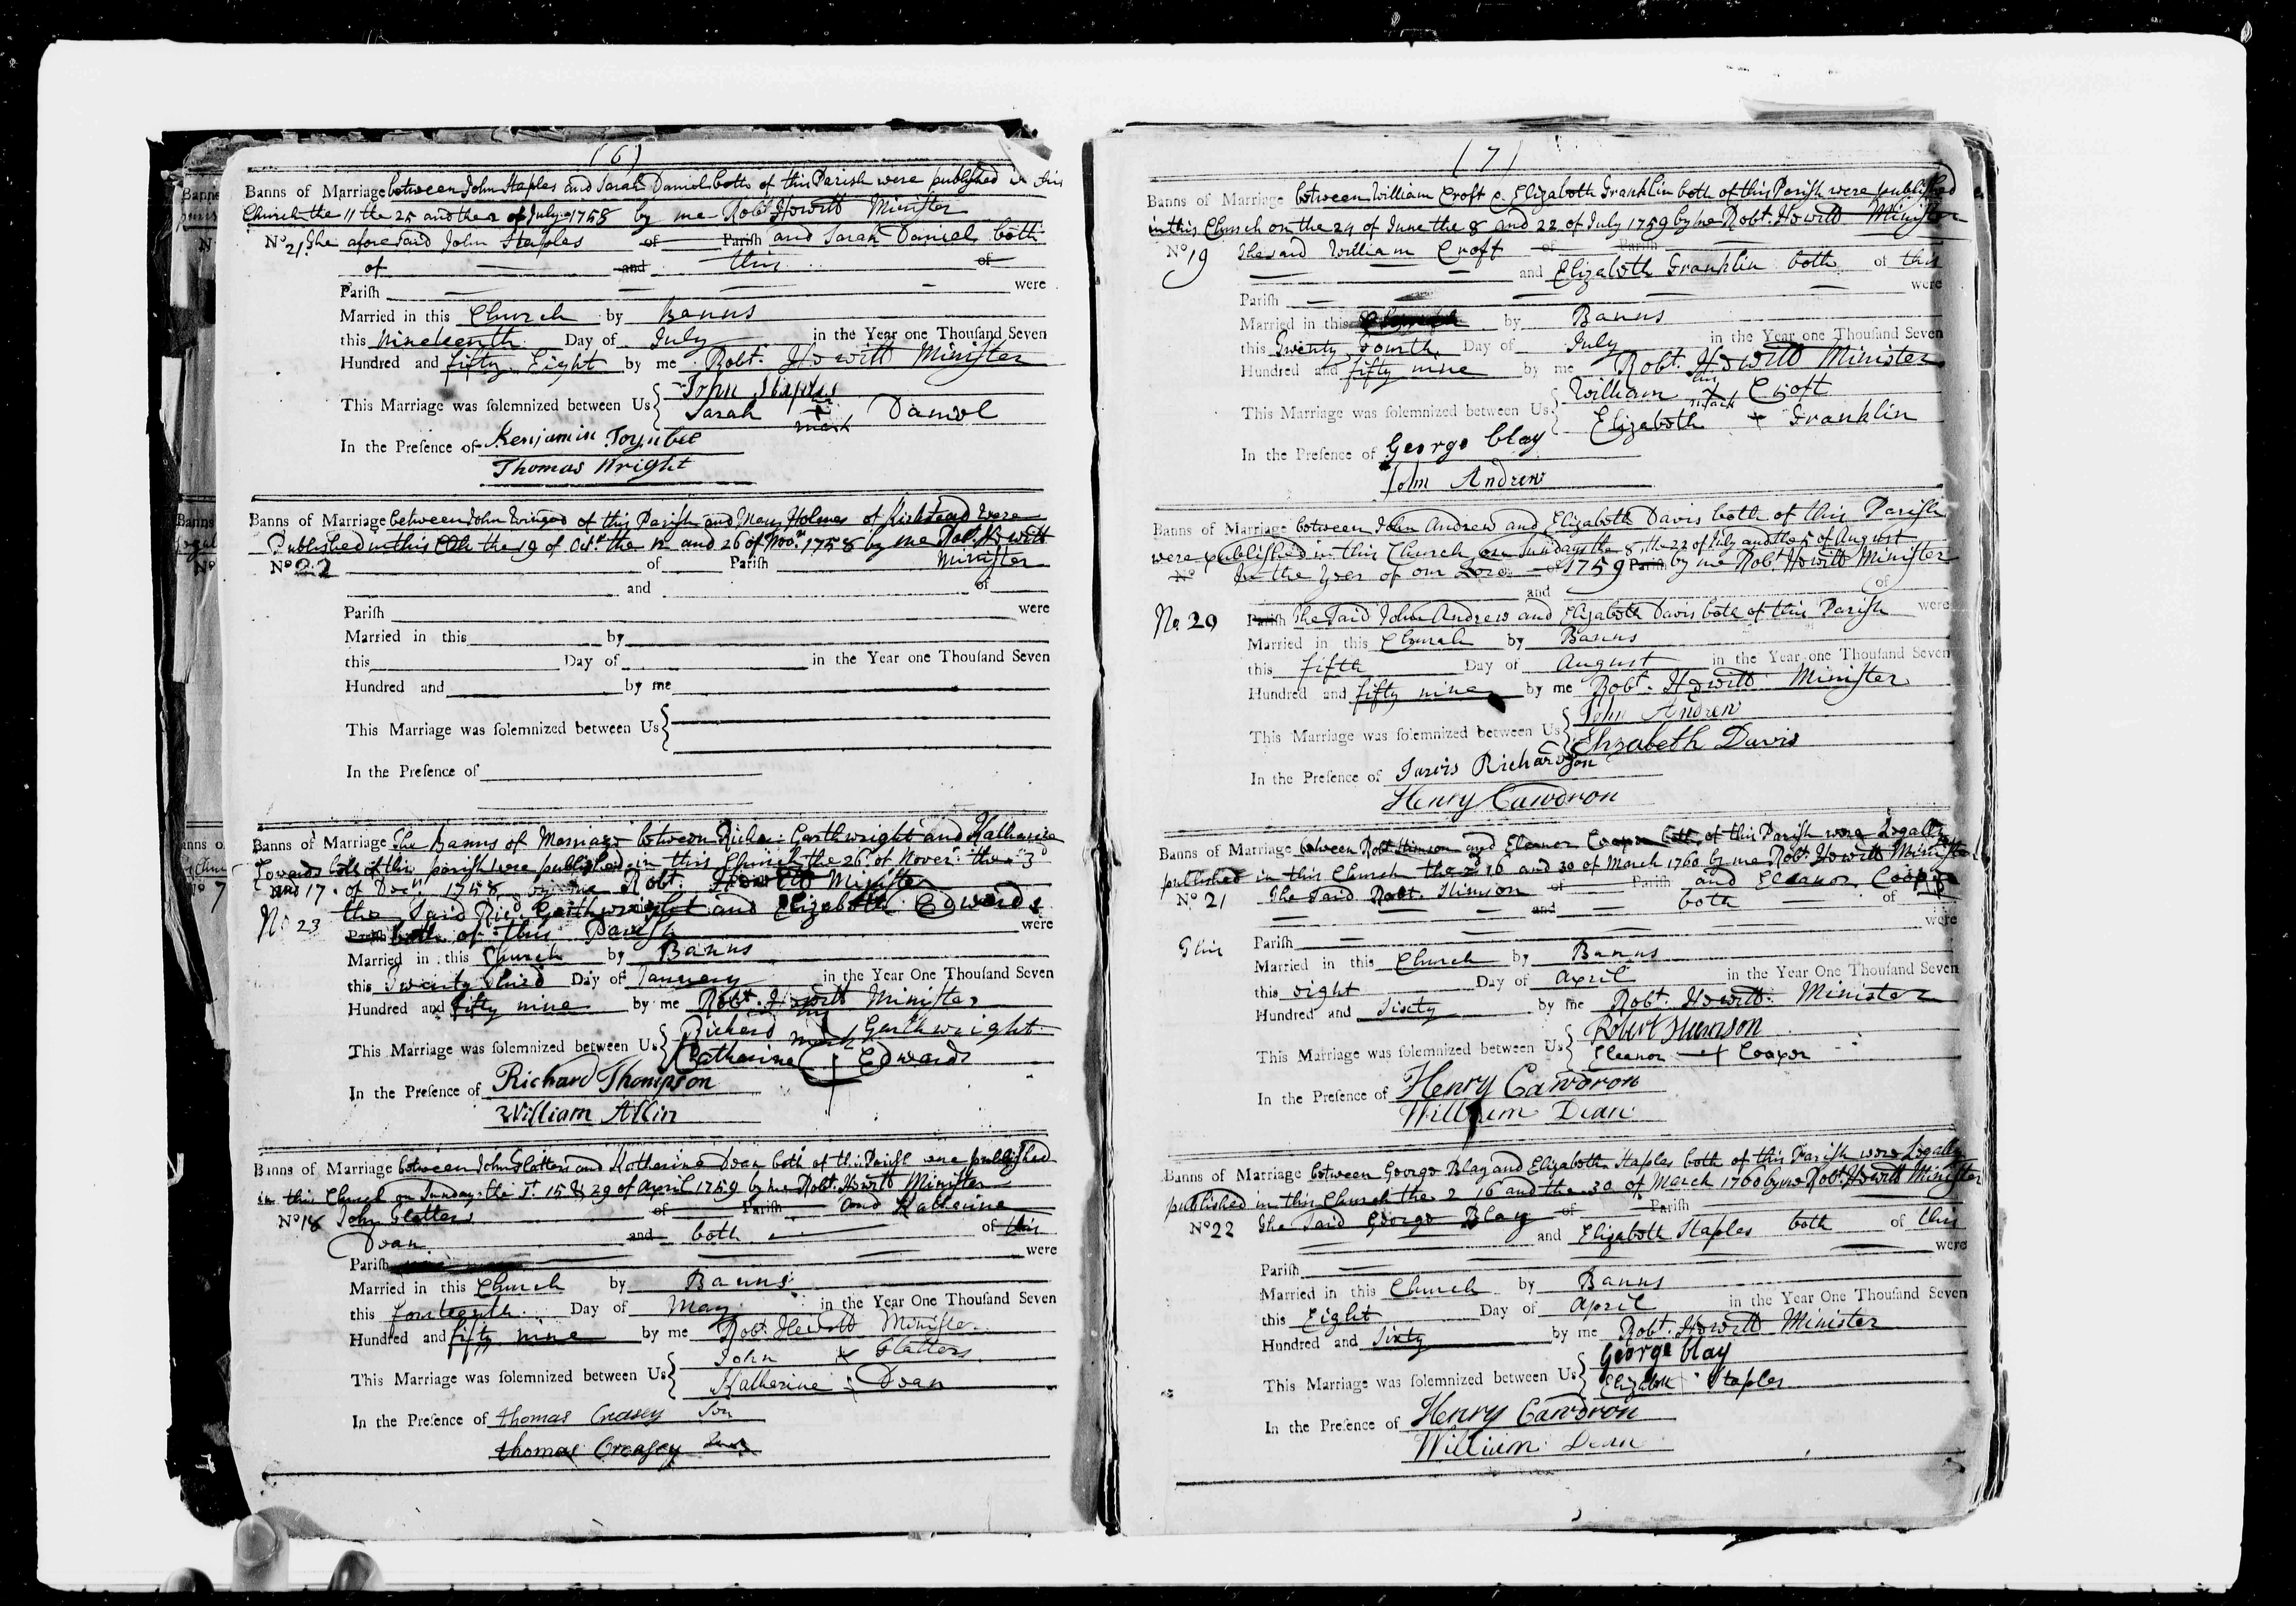 (6)
Banns of Marriage between John Staples and Sarah Daniel both of this Parish were published in this
Church the 11 the 25 and the 2 of July 1758 by me Robt. Howitt Minister
No 21 The aforesaid John Staples of Parish and Sarah Daniel both
of and this of
Parish were
Married in this Church by Banns
this Nineteenth Day of July in the Year one Thousand Seven
Hundred and fifty Eight by me Robt. Howitt Minister
This Marriage was solemnized between Us John Staples
Sarah her mark Daniel
In the Presence of Benjamin Toynbee
Thomas Wright
Banns of Marriage between John of this Parish and Mary Holmes of Kirkstead were
Published in this Chh the 19 of Octr. the 12 and 26 of Novr. 1758 by me Robt. Howitt
Minister
No 22 of Parish
and of
Parish were
Married in this by
this Day of in the Year one Thousand Seven
Hundred and by me
This Marriage was solemnized between Us
In the Presence of
Banns of Marriage The Banns of Marriage between Richd. Garthwright and Katherine
Edwards both of this parish were published in this Church the 26 of Nover. the 3d
and 17 of Decr. 1758 by me Robt. Howitt Minister
No 23 the Said Richd. Garthwright and Elizabeth Edwards
Parish both of this Parish were
Married in this Church by Banns
this Twenty third Day of January in the Year One Thousand Seven
Hundred and fifty nine by me Robt. Howitt Minister
This Marriage was solemnized between Us Richard his mark Garthwright
Catharine Edwards
In the Presence of Richard Thompson
William Allin
Banns of Marriage between John Glatters and Katherine Dean both of this Parish were published
in this Church on Sunday the 1st 15 & 29 of April 1759 by me Robt. Howitt Minister
No 18 John Glatters of Parish and Katherine
Dean and both of this
Parish were
Married in this Church by Banns
this fourteenth Day of May in the Year One Thousand Seven
Hundred and fifty nine by me Robt. Howitt Minister
This Marriage was solemnized between Us John x Glatters
Katherine Dean
In the Presence of thomas Creasey Sen
thomas Creasey
(7)
Banns of Marriage between William Croft & Elizabeth Franklin both of this Parish were published
in this Church on the 24 of June the 8 and 22 of July 1759 by me Robt. Howitt Minister
No 19 The said William Croft of Parish
and Elizabeth Franklin both of this
Parish were
Married in this Church by Banns
this Twenty Fourth Day of July in the Year one Thousand Seven
Hundred and fifty nine by me Robt. Howitt Minister
This Marriage was solemnized between Us William his x mark Croft
Elizabeth x Franklin
In the Presence of George Clay
John Andrew
Banns of Marriage between John Andrew and Elizabeth Davis both of this Parish
were published in this Church on Sundays the 8, the 22 of July and the 5 of August
No In the Year of our Lord of 1759 Parish by me Robt. Howitt Minister
and of
No. 20 Parish The Said John Andrew and Elizabeth Davis both of this Parish were
Married in this Church by Banns
this fifth Day of August in the Year one Thousand Seven
Hundred and fifty nine by me Robt. Howitt Minister
This Marriage was solemnized between Us John Andrew
Elizabeth Davis
In the Presence of Jarvis Richardson
Henry Cawdron
Banns of Marriage between Robt. Stimson and Eleanor Cooper both of this Parish were Legally
published in this Church the 2d 16 and 30 of March 1760 by me Robt. Howitt Minister
No 21 The Said Robt. Stimson of Parish and Eleanor Cooper
and both of
This Parish were
Married in this Church by Banns
this eight Day of April in the Year One Thousand Seven
Hundred and Sixty by me Robt. Howitt Minister
This Marriage was solemnized between Us Robert Stimson
Eleanor Cooper
In the Presence of Henry Cawdron
William Dean
Banns of Marriage between George Blay and Elizabeth Staples both of this Parish were Legally
published in this Church the 2 16 and the 30 of March 1760 by me Robt. Howitt Minister
No 22 The Said George Blay of Parish
and Elizabeth Staples both of this
Parish were
Married in this Church by Banns
this Eight Day of April in the Year One Thousand Seven
Hundred and Sixty by me Robt. Howitt Minister
This Marriage was solemnized between Us George blay
Elizabeth Staples
In the Presence of Henry Cawdron
William Dean